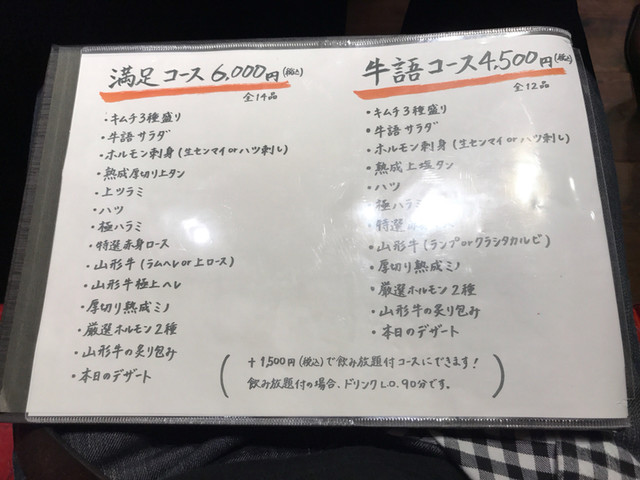 満足コース 6,000円(税込)
全14品
・キムチ3種盛り
・牛語サラダ
・ホルモン刺身(生センマイorハツ刺し)
・熟成厚切り上タン
・上ツラミ
・ハツ
・極ハラミ
・特選赤身ロース
・山形牛(ラムヘレor上ロース)
・山形牛極上ヘレ
・厚切り熟成ミノ
・厳選ホルモン2種
・山形牛の炙り包み
・本日のデザート
牛語コース4,500円(税込)
全12品
・キムチ3種盛り
・牛語サラダ
・ホルモン刺身(生センマイorハツ刺し)
・熟成上塩タン
・ハツ
・極ハラミ
・特選赤身
・山形牛(ランプorクラシタカルビ)
・厚切り熟成ミノ
・厳選ホルモン2種
・山形牛の炙り包み
・本日のデザート
(+1,500円(税込)で飲み放題付コースにできます!
飲み放題付の場合、ドリンクL.O.90分です。)